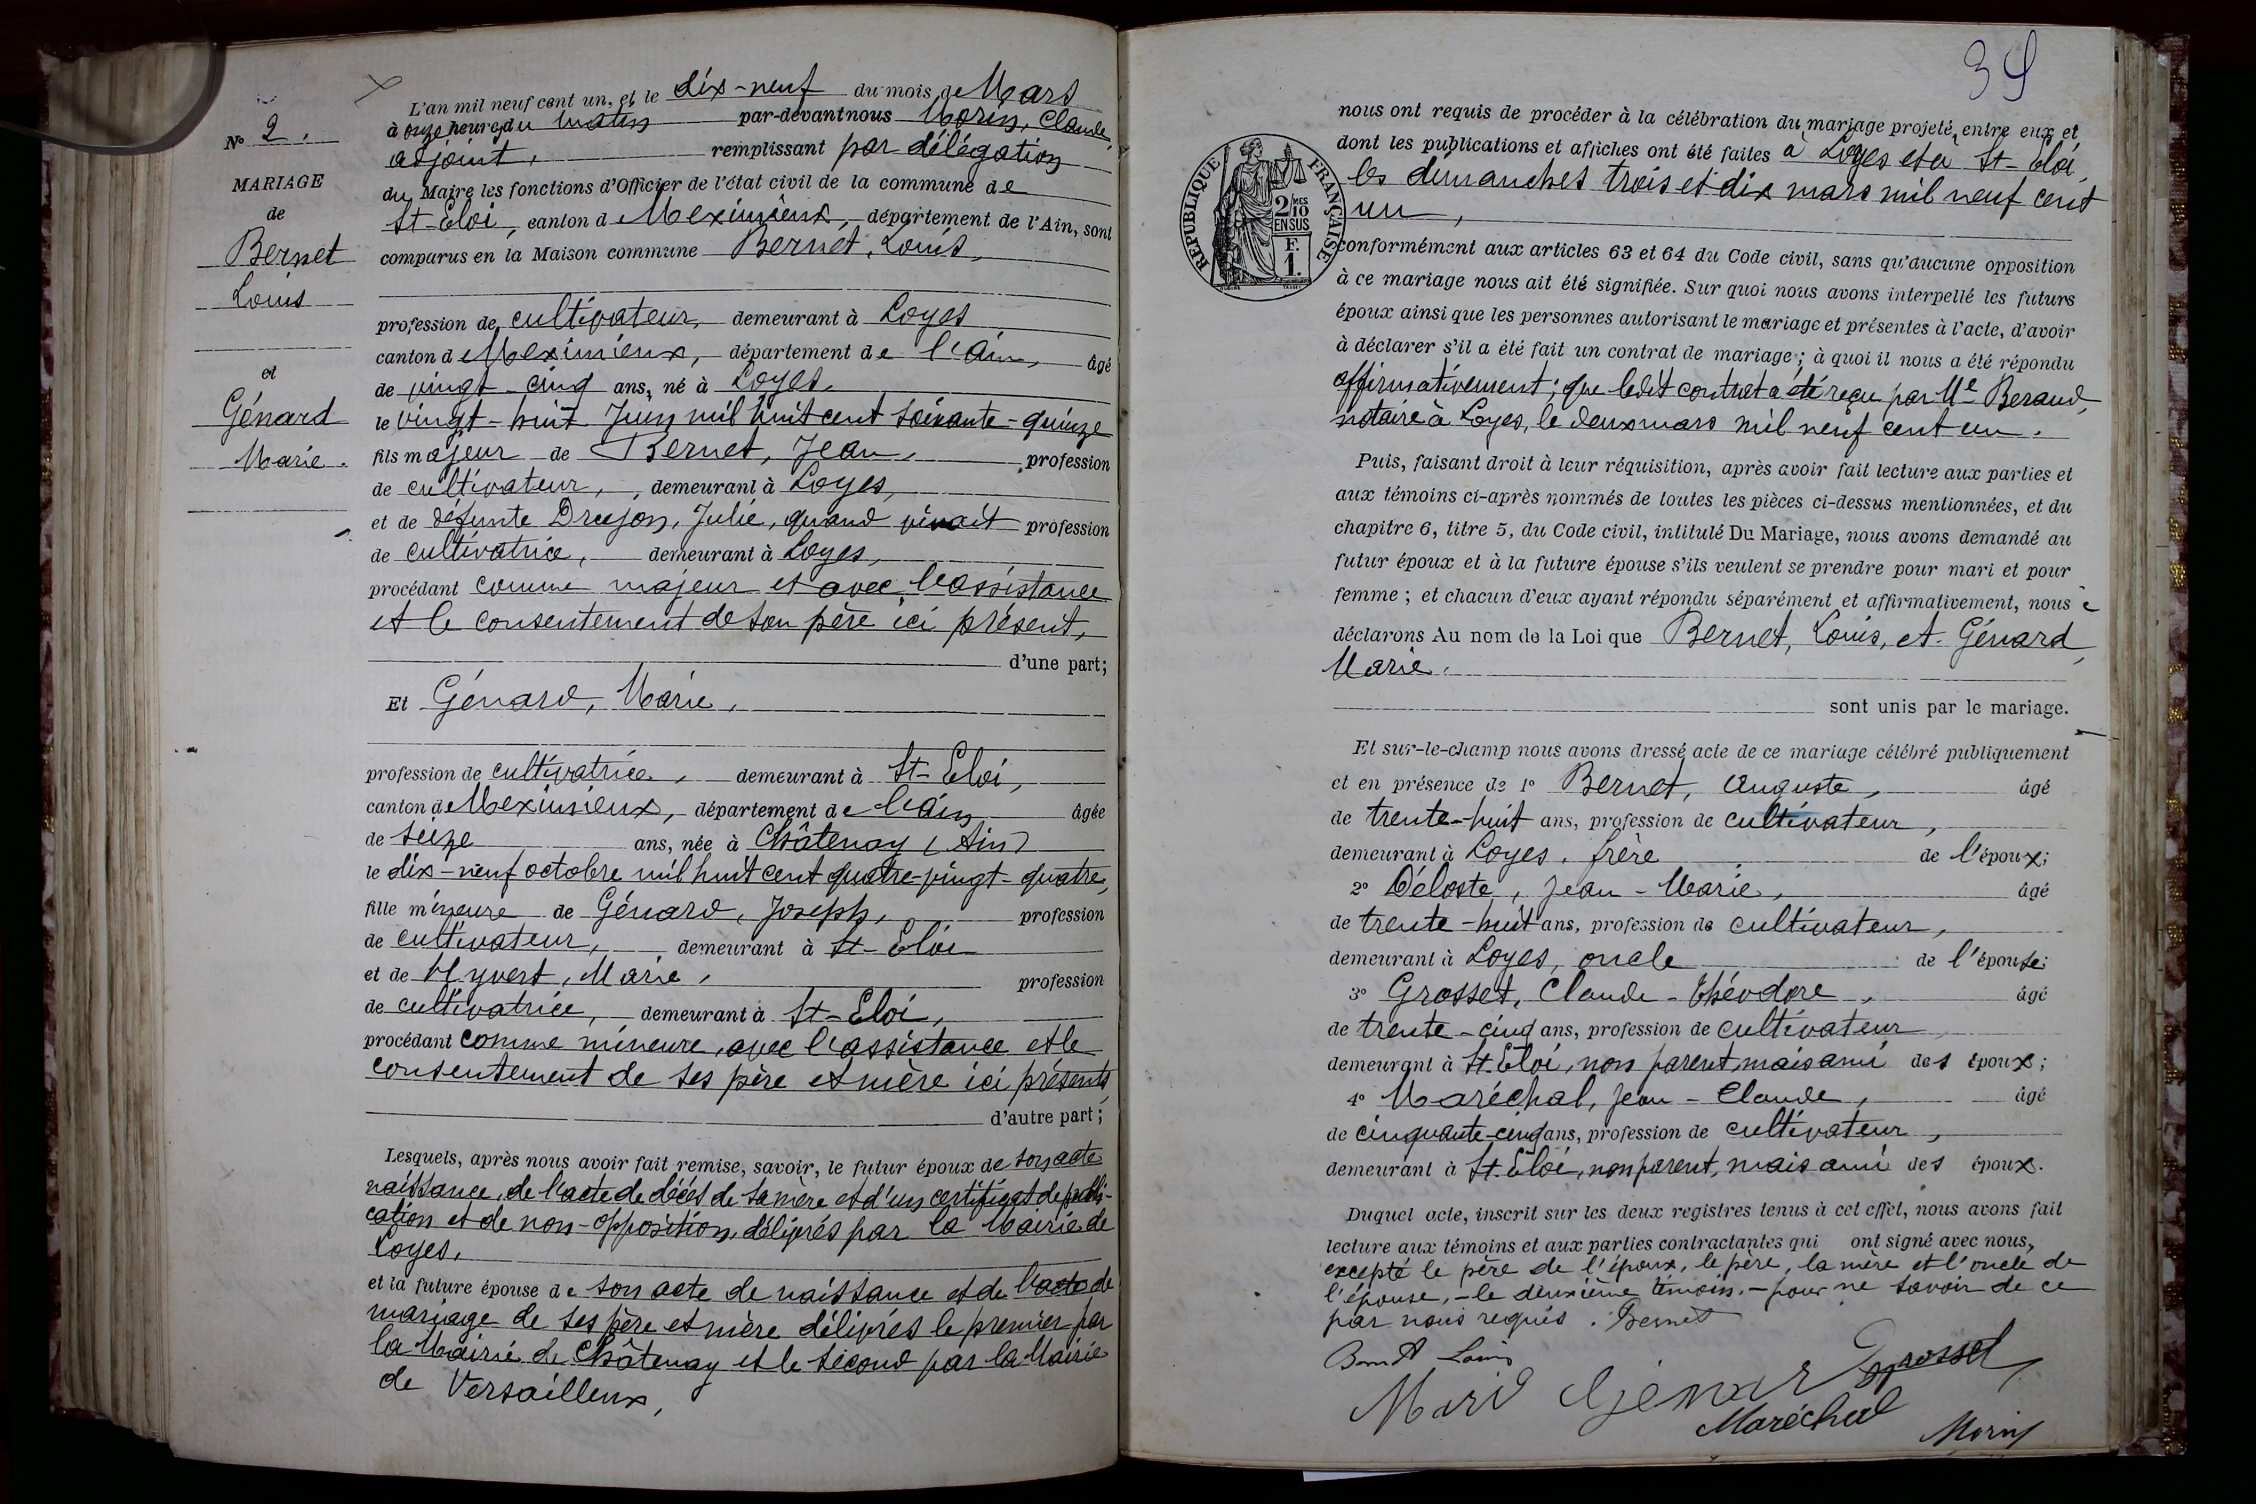 L'an mil neuf cent un, et le dix-neuf du mois de Mars
à onze heures du matin par-devant nous Morin, Claude,
adjoint, remplissant par délégation
du Maire les fonctions d'Officier de l'état civil de la commune de
St-Eloi, canton de Meximieux, département de l'Ain, sont
comparus en la Maison commune Bernet, Louis,
profession de cultivateur, demeurant à Loyes
canton de Meximieux, département de l'Ain, âgé
de vingt-cinq ans, né à Loyes,
le vingt-huit Juin mil huit cent soixante-quinze
fils majeur de Bernet, Jean, profession
de cultivateur, demeurant à Loyes,
et de défunte Drujon, Julie, quand vivait profession
de cultivatrice, demeurant à Loyes,
procédant comme majeur et avec l'assistance
et le consentement de son père ici présent,
d'une part;
Et Génard, Marie,
profession de cultivatrice, demeurant à St-Eloi,
canton de Meximieux, département de l'Ain âgée
de seize ans, née à Châtenay (Ain)
le dix-neuf octobre mil huit cent quatre-vingt-quatre,
fille mineure de Génard, Joseph, profession
de cultivateur, demeurant à St-Eloi
et de Hyvert, Marie, profession
de cultivatrice, demeurant à St-Eloi,
procédant comme mineure, avec l'assistance et le
consentement de ses père et mère ici présents
d'autre part;
Lesquels, après nous avoir fait remise, savoir, le futur époux de son acte
naissance, de l'acte de décès de sa mère et d'un certificat de publi-
cation et de non-opposition, délivrés par la Mairie de
Loyes,
et la future épouse de son acte de naissance et de l'acte de
mariage de ses père et mère délivrés le premier par
la Mairie de Châtenay et le second par la Mairie
de Versailleux,
N° 2.
MARIAGE
de
Bernet
Louis
et
Génard
Marie.
39
nous ont requis de procéder à la célébration du mariage projeté entre eux et
dont les publications et affiches ont été faites à Loyes et à St-Eloi,
les dimanches trois et dix mars mil neuf cent
un,
RÉPUBLIQUE FRANÇAISE
2/10 MES
EN SUS
F.
1.
conformément aux articles 63 et 64 du Code civil, sans qu'aucune opposition
à ce mariage nous ait été signifiée. Sur quoi nous avons interpellé les futurs
époux ainsi que les personnes autorisant le mariage et présentes à l'acte, d'avoir
à déclarer s'il a été fait un contrat de mariage; à quoi il nous a été répondu
affirmativement; que ledit contrat a été reçu par Me Beraud,
notaire à Loyes, le deux mars mil neuf cent un.
Puis, faisant droit à leur réquisition, après avoir fait lecture aux parties et
aux témoins ci-après nommés de toutes les pièces ci-dessus mentionnées, et du
chapitre 6, titre 5, du Code civil, intitulé Du Mariage, nous avons demandé au
futur époux et à la future épouse s'ils veulent se prendre pour mari et pour
femme; et chacun d'eux ayant répondu séparément et affirmativement, nous
déclarons Au nom de la Loi que Bernet, Louis, et Génard,
Marie.
sont unis par le mariage.
Et sur-le-champ nous avons dressé acte de ce mariage célébré publiquement
et en présence de 1° Bernet, Auguste, âgé
de trente-huit ans, profession de cultivateur,
demeurant à Loyes, frère de l'époux;
2° Déloste, Jean-Marie, âgé
de trente-huit ans, profession de cultivateur,
demeurant à Loyes, oncle de l'épouse;
3° Grosset, Claude-Théodore, âgé
de trente-cinq ans, profession de cultivateur
demeurant à St-Eloi, non parent, mais ami des époux;
4° Maréchal, Jean-Claude, âgé
de cinquante-cinq ans, profession de cultivateur,
demeurant à St-Eloi, non parent, mais ami des époux.
Duquel acte, inscrit sur les deux registres tenus à cet effet, nous avons fait
lecture aux témoins et aux parties contractantes qui ont signé avec nous,
excepté le père de l'époux, le père, la mère et l'oncle de
l'épouse, -le deuxième témoin,- pour ne savoir de ce
par nous requis. Bernet
Louis
Marie Génard Grosset
Maréchal Morin